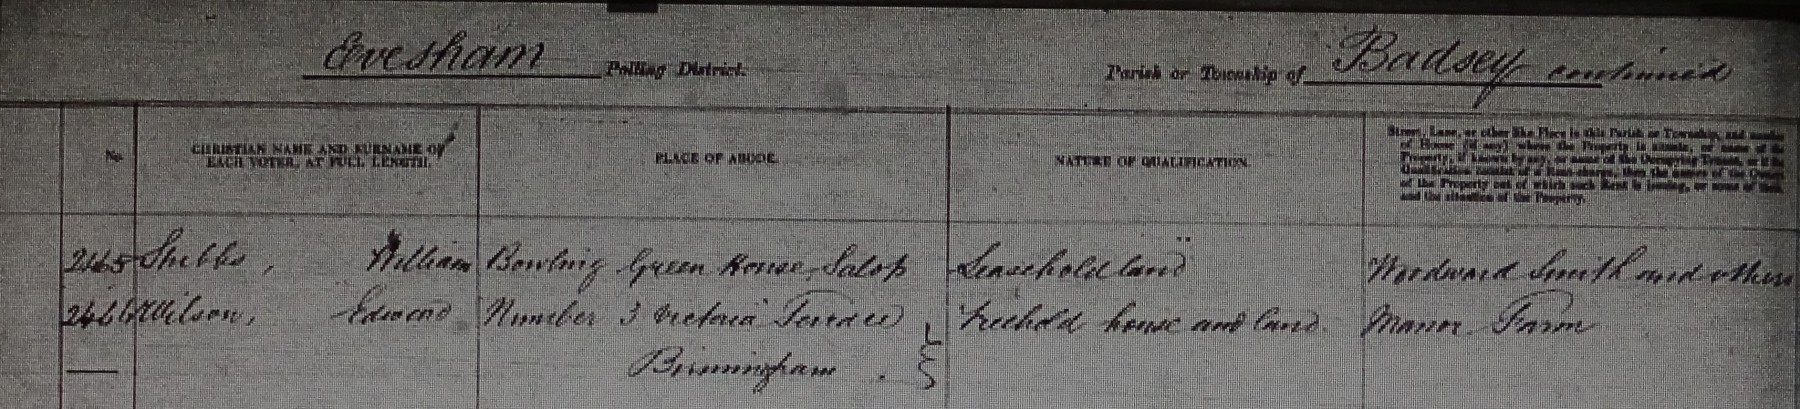 Evesham Polling District. Parish or Township of Badsey continued
No. CHRISTIAN NAME AND SURNAME OF EACH VOTER, AT FULL LENGTH. PLACE OF ABODE. NATURE OF QUALIFICATION.
Street, Lane, or other like Place in this Parish or Township, and number
of House (if any) where the Property is situate, or name of the
Property, if known by any, or name of the Occupying Tenant, or if the
Qualification consist of a Rent-charge, then the names of the Owners
of the Property out of which such Rent is issuing, or some of them,
and the situation of the Property.
2465 Stubbs, William Bowling Green House, Salop Leasehold land Woodward Smith and others
2466 Wilson, Edward Number 3 Victoria Terrace Freehold house and land Manor Farm
Birmingham.